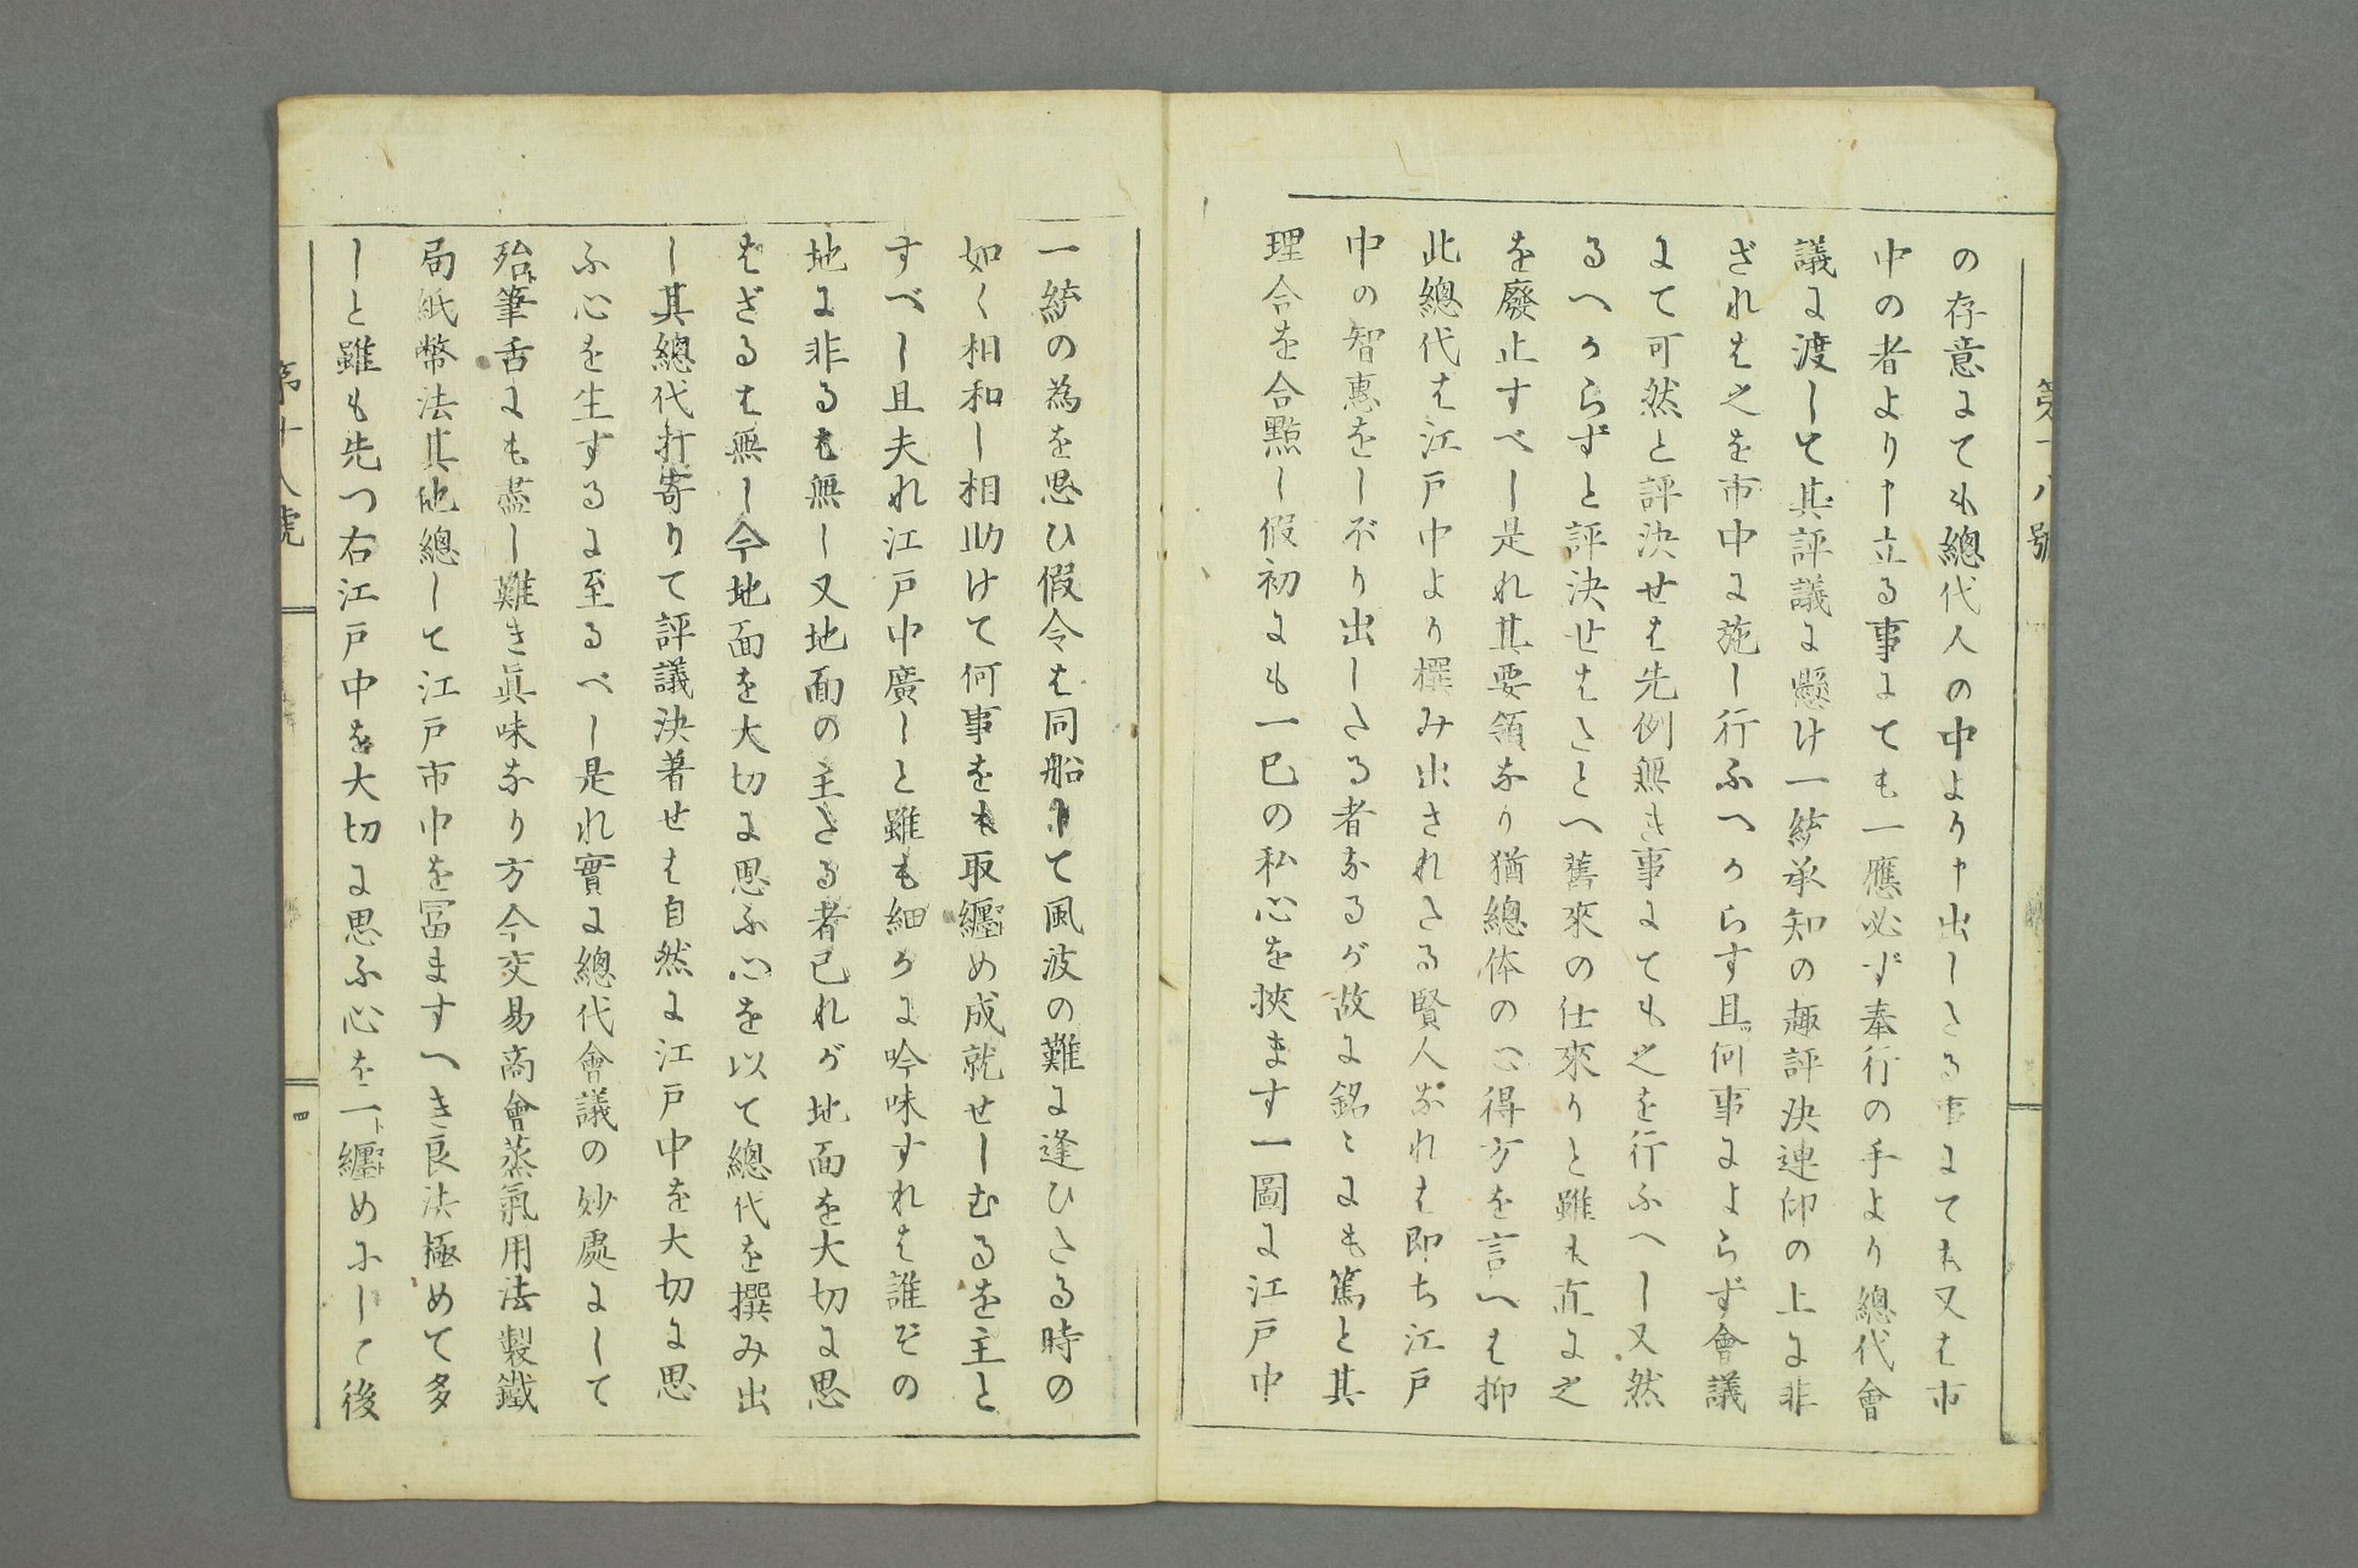 第十八號
の存意にても總代人の中より申出したる事にても又は市
中の者より申立る事にても一應必ず奉行の手より總代會
議に渡して其評議に懸け一統承知の趣評決連印の上に非
ざれは之を市中に施し行ふへからす且何事によらず會議
にて可然と評決せは先例無き事にても之を行ふへし又然
るへからずと評決せはたとへ舊來の仕來りと雖も直に之
を廢止すべし是れ其要領なり猶總体の心得方を言へは抑
此總代は江戸中より撰み出されたる賢人なれは即ち江戸
中の智惠をしぼり出したる者なるが故に銘〻にも篤と其
理合を合點し假初にも一己の私心を挾ます一圖に江戸中
一統の為を思ひ假令は同船して風波の難に逢ひたる時の
如く相和し相助けて何事をも取纏め成就せしむるを主と
すべし且夫れ江戸中廣しと雖も細かに吟味すれは誰ぞの
地に非るも無し又地面の主たる者己れが地面を大切に思
はざるは無し今地面を大切に思ふ心を以て總代を撰み出
し其總代打寄りて評議決着せは自然に江戸中を大切に思
ふ心を生するに至るべし是れ實に總代會議の妙處にして
殆ト筆舌にも盡し難き眞味なり方今交易商會蒸氣用法製鐵
局紙幣法其他總して江戸市中を冨ますへき良法極めて多
しと雖も先つ右江戸中を大切に思ふ心を一ト纏めにして後
第十八號
四